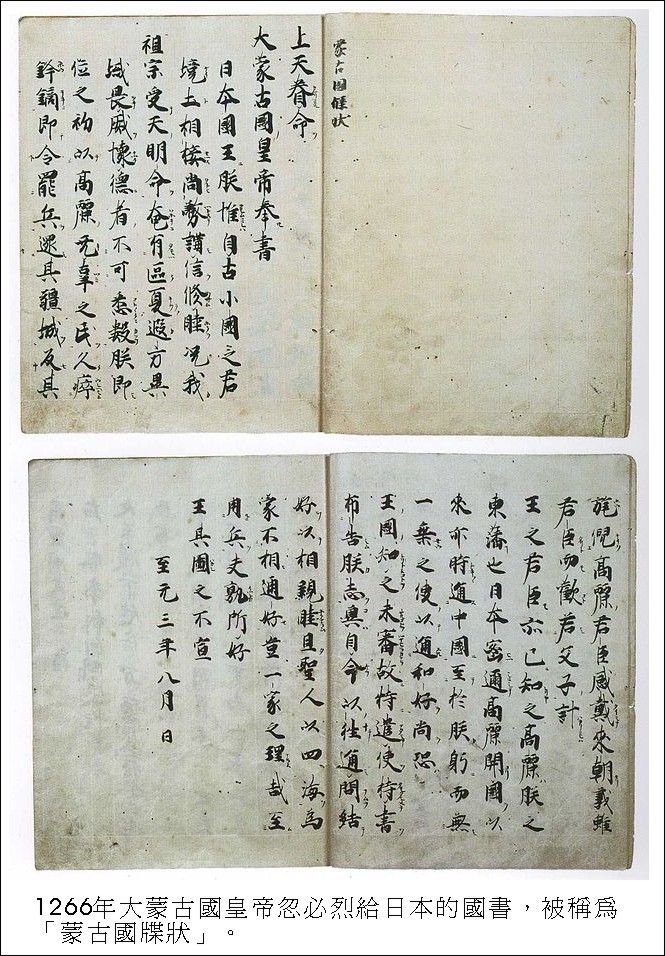 蒙古国牒状
上天眷命
大蒙古國皇帝奉書
日本國王朕惟自古小國之君
境土相接尚務講信修睦况我
祖宗受天明命奄有區夏遐方異
域畏威懐德者不可悉數朕即
位之初以高麗无辜之民久瘁
鋒鏑即令罷兵還其疆城反其
旄倪高麗君臣感戴来朝義雖
君臣而歡若父子計
王之君臣亦已知之高麗朕之
東藩也日本密邇高麗開國以
来亦時通中國至於朕躬而無
一乗之使以通和好尚恐
王國知之未審故特遣使持書
布告朕志冀自今以往通問結
好以相親睦且聖人以四海為
家不相通好豈一家之理哉至
用兵夫孰所好
王其圖之不宣
至元三年八月日
1266年大蒙古國皇帝忽必烈給日本的國書，被稱爲
「蒙古國牒狀」。